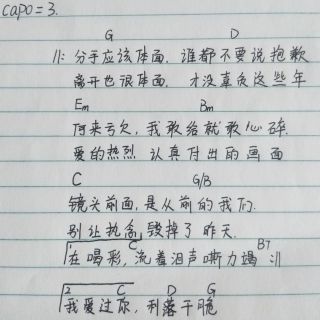 capo=3.
G D
‖: 分手应该体面, 谁都不要说抱歉
离开也很体面, 才没辜负这些年
Em Bm
何来亏欠, 我敢给就敢心碎
爱的热烈 认真付出的画面
C G/B
镜头前面, 是从前的我们.
别让执念 毁掉了昨天.
1 C B7
在喝彩, 流着泪声嘶力竭 :‖
2 C D G
我爱过你, 利落干脆